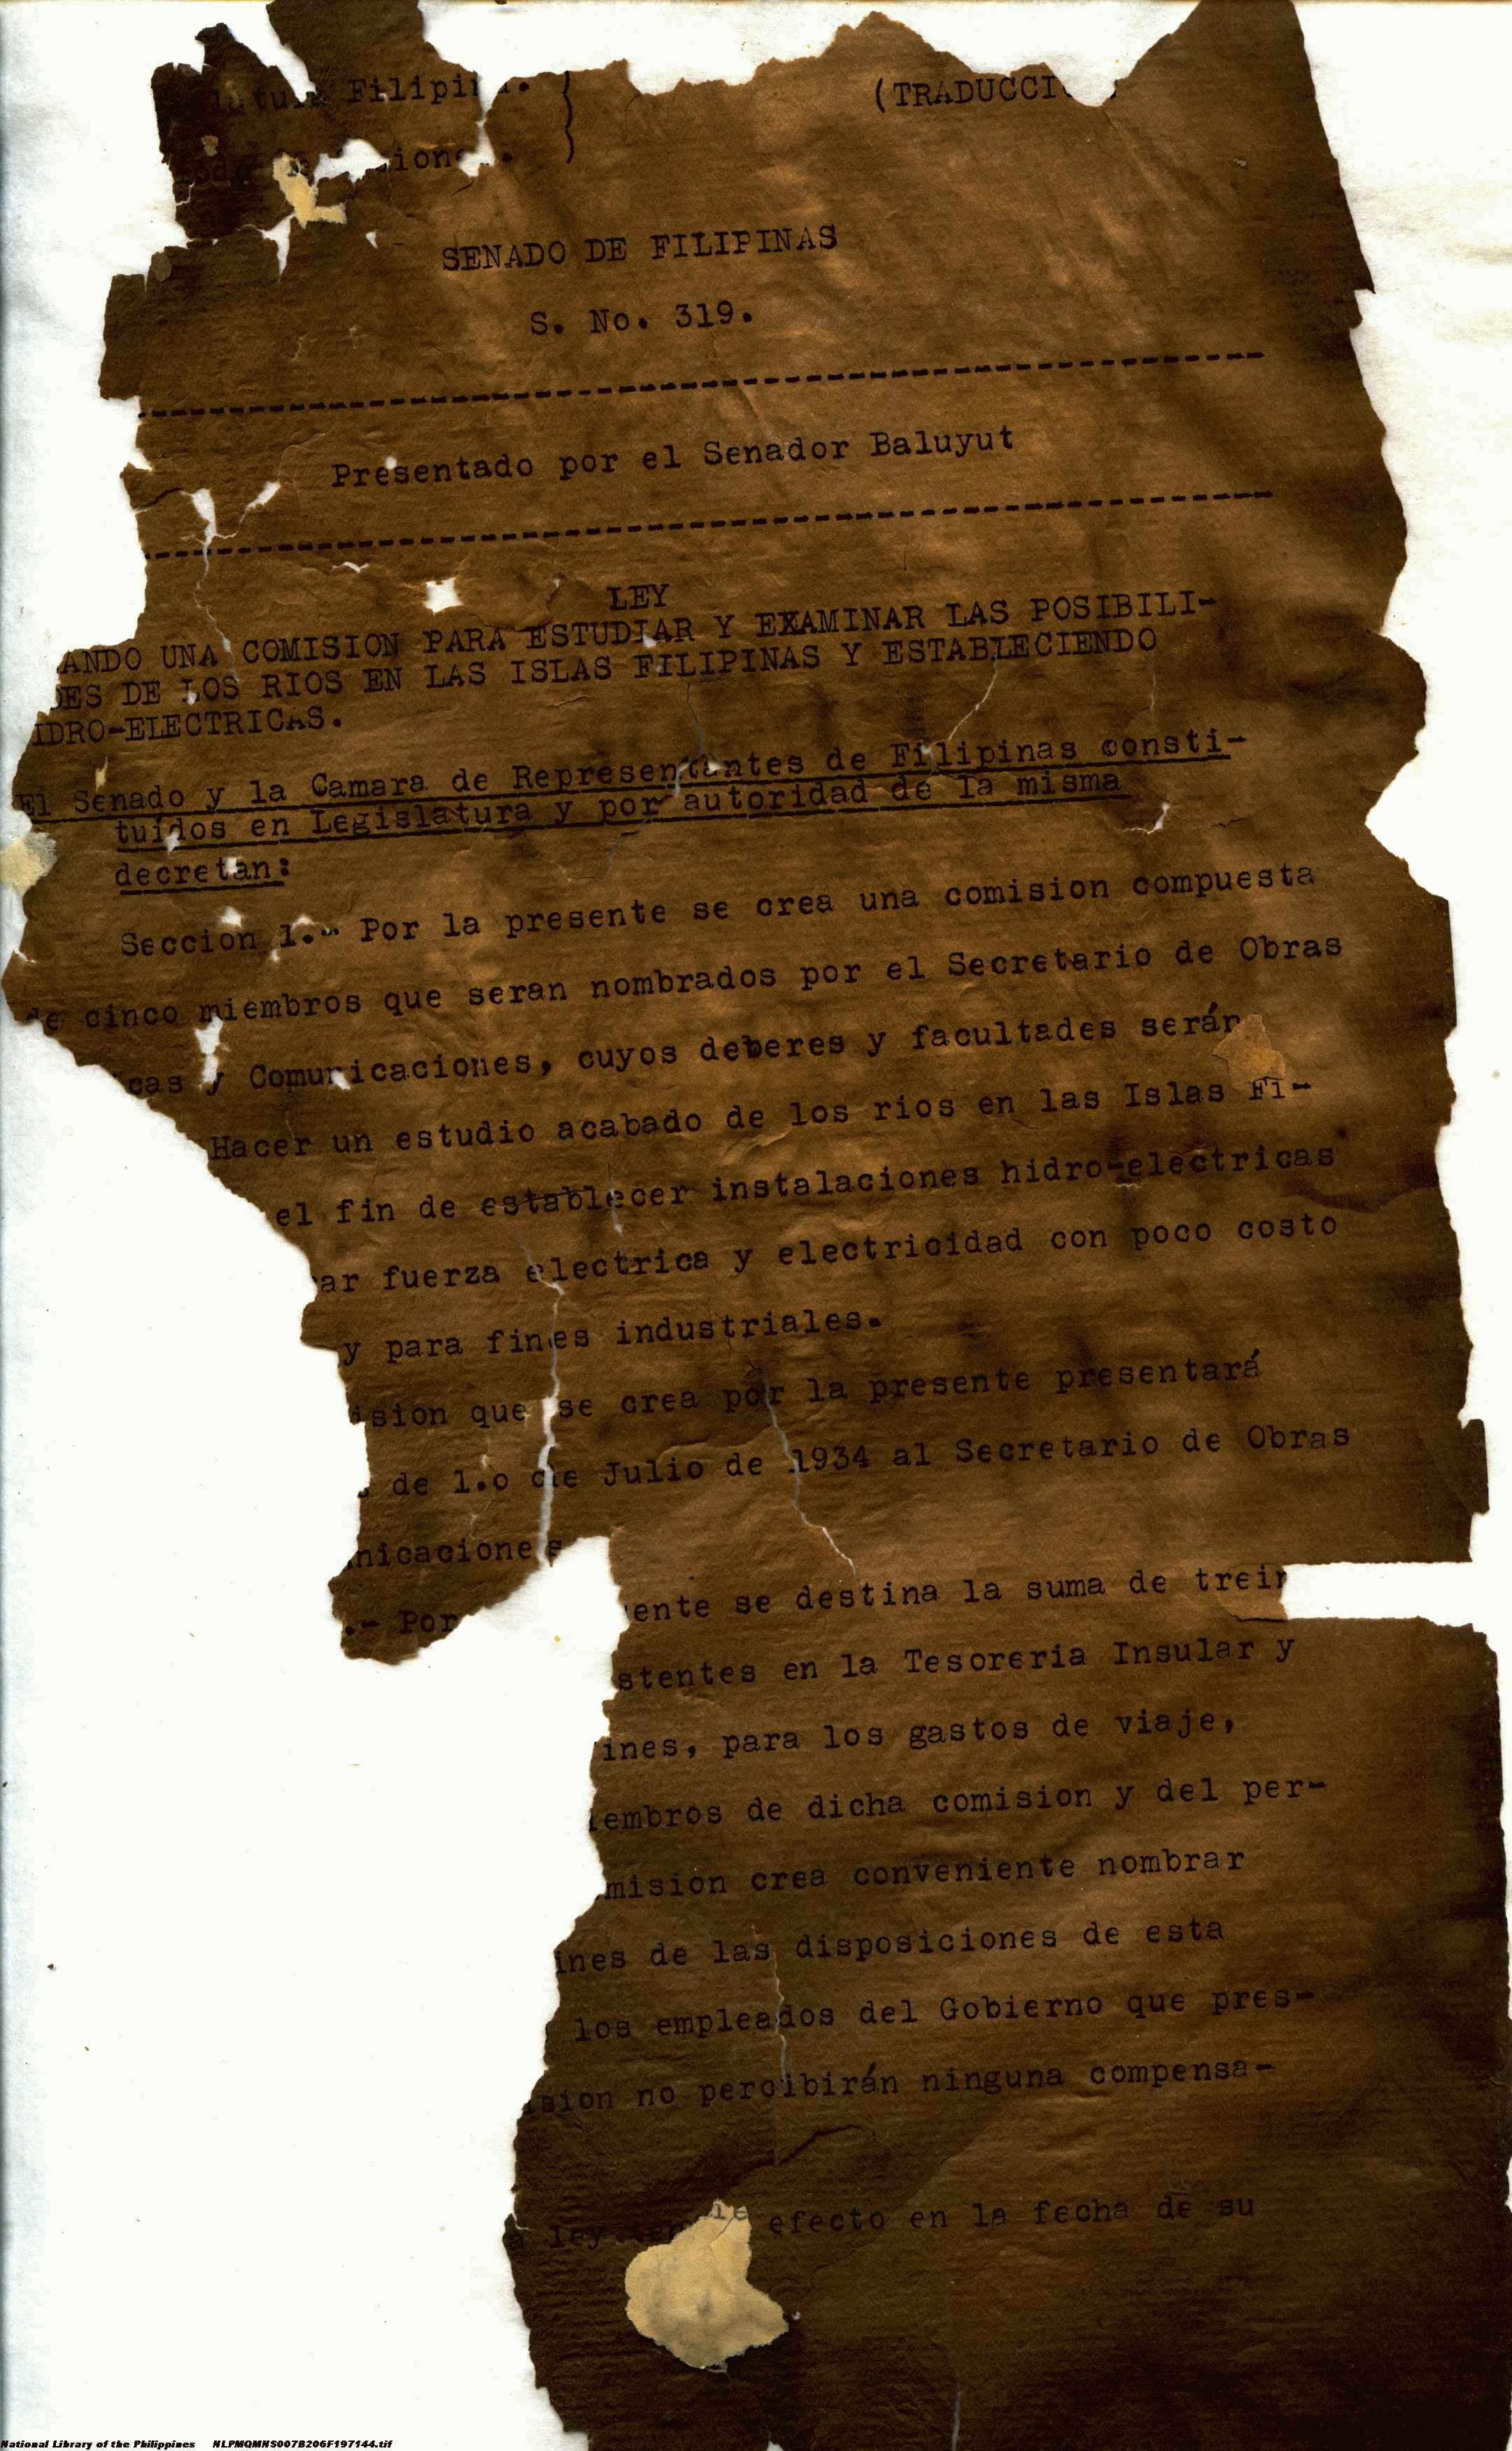 Filipina.
(TRADUCCI
SENADO DE FILIPINAS
S. No. 319.
Presentado por el Senador Baluyut
LEY
ANDO UNA COMISION PARA ESTUDIAR Y EXAMINAR LAS POSIBILI-
DES DE LOS RIOS EN LAS ISLAS FILIPINAS Y ESTABLECIENDO
IDRO-ELECTRICAS.
El Senado y la Camara de Representantes de Filipinas consti-
tuídos en Legislatura y por autoridad de la misma
decretan:
Seccion 1.- Por la presente se crea una comision compuesta
de cinco miembros que seran nombrados por el Secretario de Obras
cas y Comunicaciones, cuyos deberes y facultades serán
Hacer un estudio acabado de los rios en las Islas Fi-
el fin de establecer instalaciones hidro-electricas
ar fuerza electrica y electricidad con poco costo
y para fines industriales.
ision que se crea por la presente presentará
de 1.o de Julio de 1934 al Secretario de Obras
nicaciones
.- Por ente se destina la suma de trein
stentes en la Tesoreria Insular y
ines, para los gastos de viaje,
iembros de dicha comision y del per-
mision crea conveniente nombrar
ines de las disposiciones de esta
los empleados del Gobierno que pres-
ision no percibirán ninguna compensa-
ley efecto en la fecha de su
National Library of the Philippines NLPMQMNS007B206F197144.tif